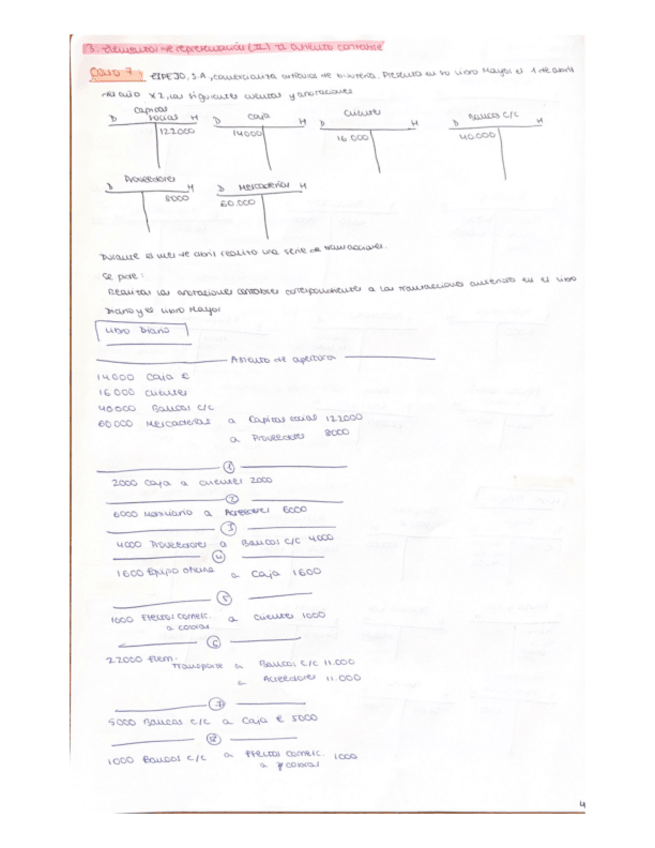 3. Elementos de representación (II) el asiento contable
Caso 7: ESPEJO, S.A, comercializa artículos de bisutería. Presenta en su libro Mayor el 1 de abril
del año X2, las siguientes cuentas y anotaciones
D Capital social H
122000
D Caja H
14000
D Clientes H
16 000
D Bancos C/C H
40.000
D Proveedores H
8000
D Mercaderías H
60.000
Durante el mes de abril realizó una serie de transacciones.
Se pide:
Realizar las anotaciones contables correspondientes a las transacciones en el libro
Diario y el libro Mayor
Libro Diario
Asiento de apertura
14000 Caja €
16000 Clientes
40000 Bancos c/c
60000 Mercaderías a Capital social 122000
a Proveedores 8000
1
2000 Caja a clientes 2000
2
6000 Mobiliario a Acreedores 6000
3
4000 Proveedores a Bancos c/c 4000
4
1600 Equipo oficina a Caja 1600
5
1000 Efectos comerc. a clientes 1000
a cobrar
6
22000 Elem. Transporte a Bancos c/c 11.000
a Acreedores 11.000
7
5000 Bancos c/c a Caja € 5000
8
1000 Bancos c/c a Efectos comerc. 1000
a cobrar
4